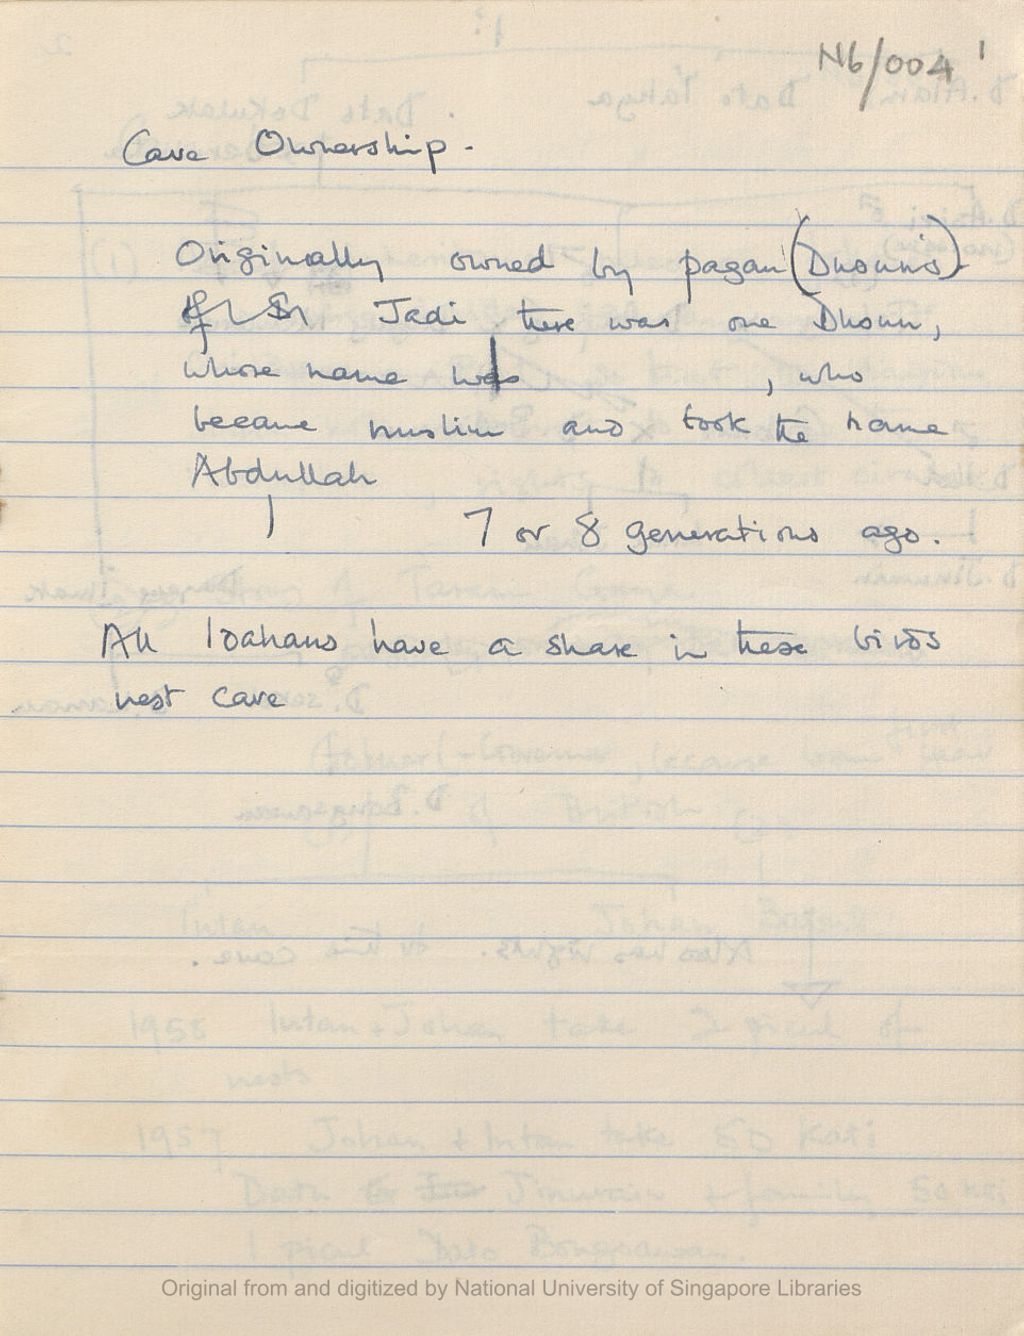 N6/004 1
Cave Ownership.
Originally owned by pagan (Dusuns)
Jadi there was one Dusun,
whose name was , who
became muslim and took the name
Abdullah
7 or 8 generations ago.
All Idahans have a share in these birds
nest cave
Original from and digitized by National University of Singapore Libraries